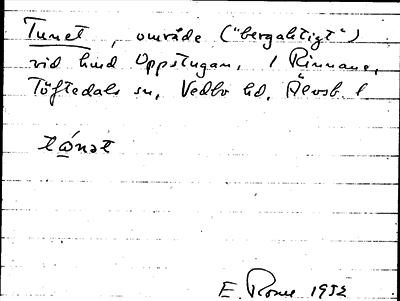 Tunet, område ("bergaktigt")
vid hmd Oppstugan, i Rinnane,
Töftedals sn, Vedbo hd, Älvsb. l
tώnət
E. 1932